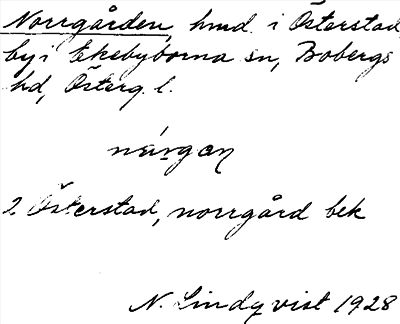 Norrgården, hmd. i Österstad,
by i Ekebyborna sn, Bobergs
hd, Österg. l.
2 Österstad, norrgård bek
N. Lindqvist 1928